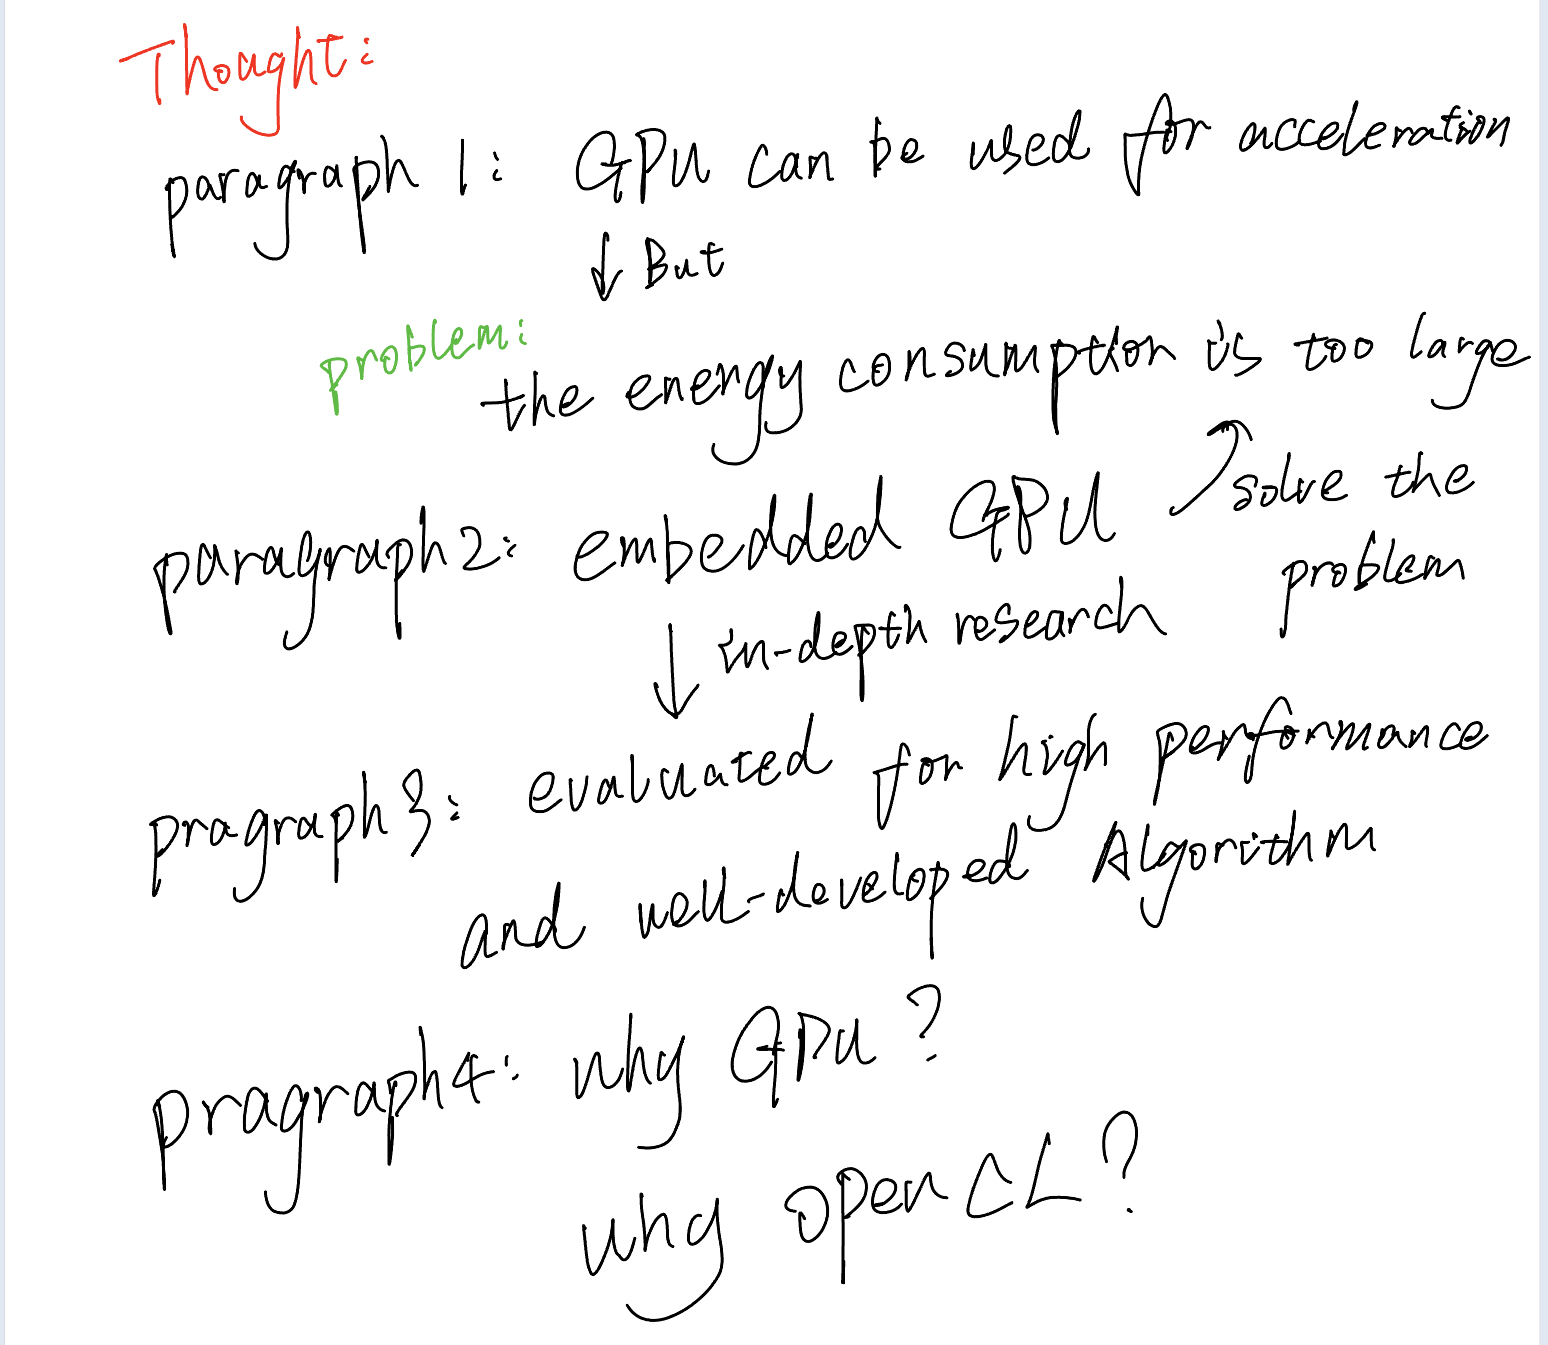 Thought:
paragraph 1: GPU can be used for acceleration
↓ But
problem:
the energy consumption is too large
paragraph2: embedded GPU ↗ solve the
problem
↓ in-depth research
pragraph3: evaluated for high performance
and well-developed Algorithm
pragraph4: why GPU?
why openCL?